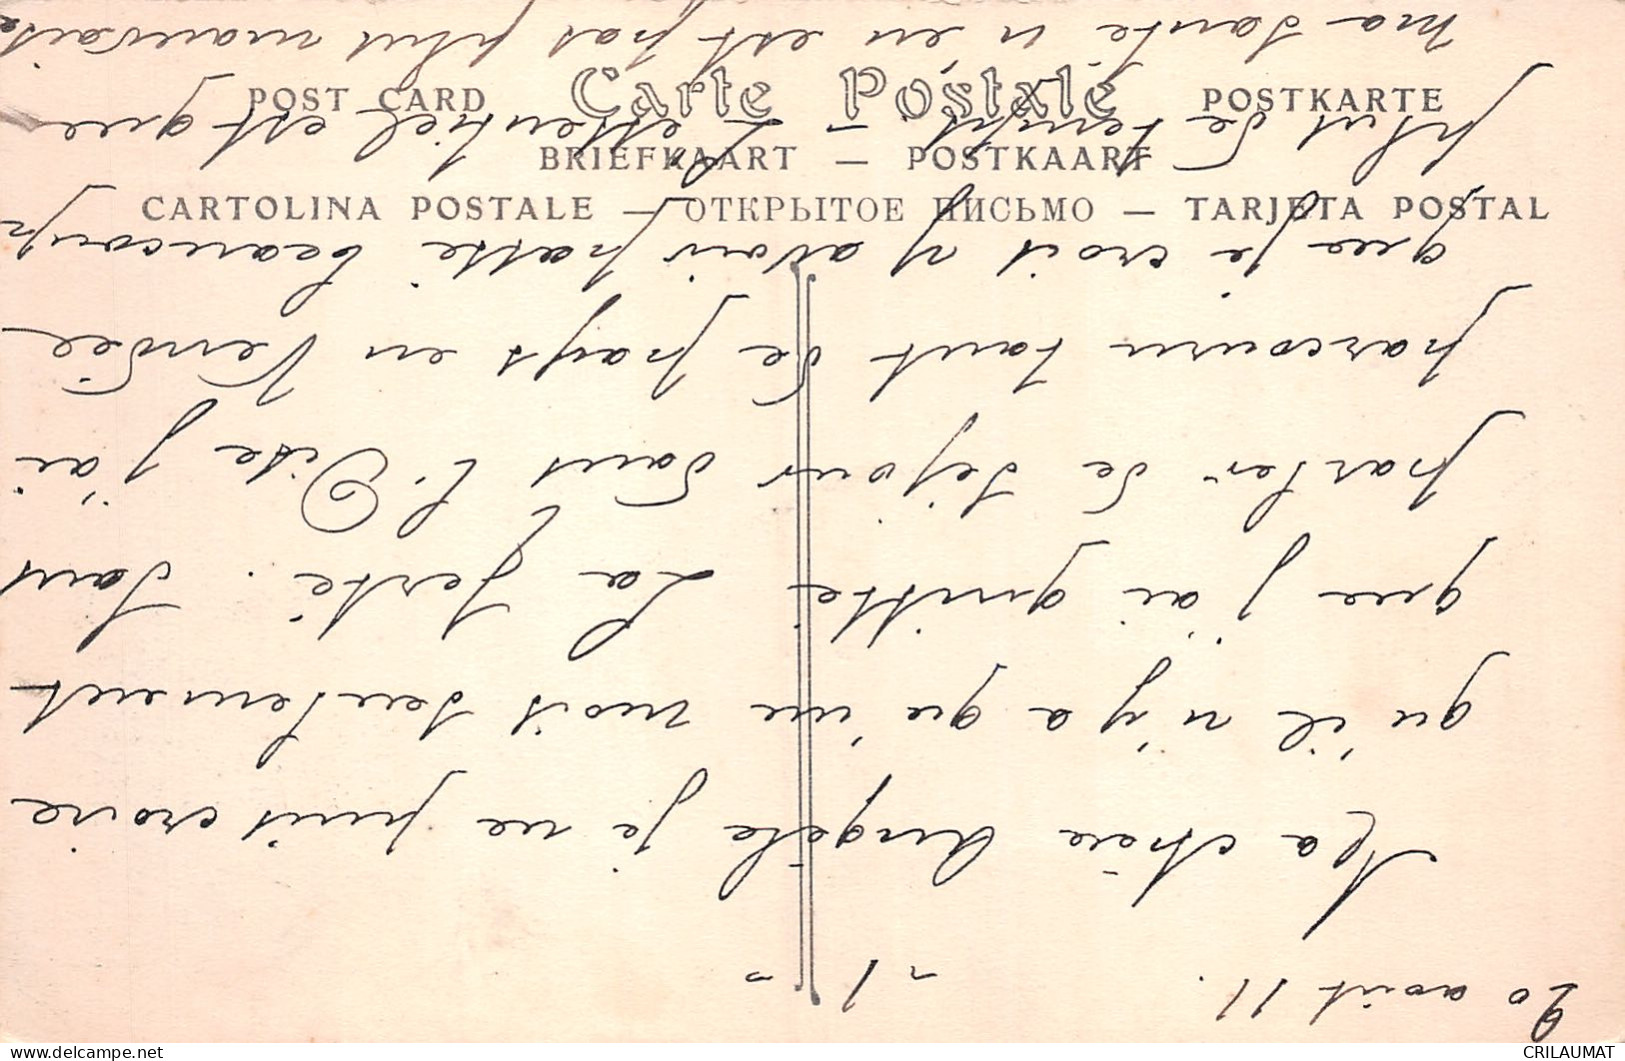 POST CARD Carte Postale POSTKARTE
BRIEFKAART — POSTKAART
CARTOLINA POSTALE — ОТКРЫТОЕ ПИСЬМО — TARJETA POSTAL
20 août 11. - 1 -
Ma chère Angèle je ne puis croire
qu'il n'y a qu'un mois seulement
que j'ai quitté La Ferté. Sans
parler de séjour dans l'Oise j'ai
parcouru tant de pays en Vendée
que je crois y avoir passé beaucoup
plus de temps - L'essentiel est que
ma santé n'en est pas plus mauvaise
CRILAUMAT